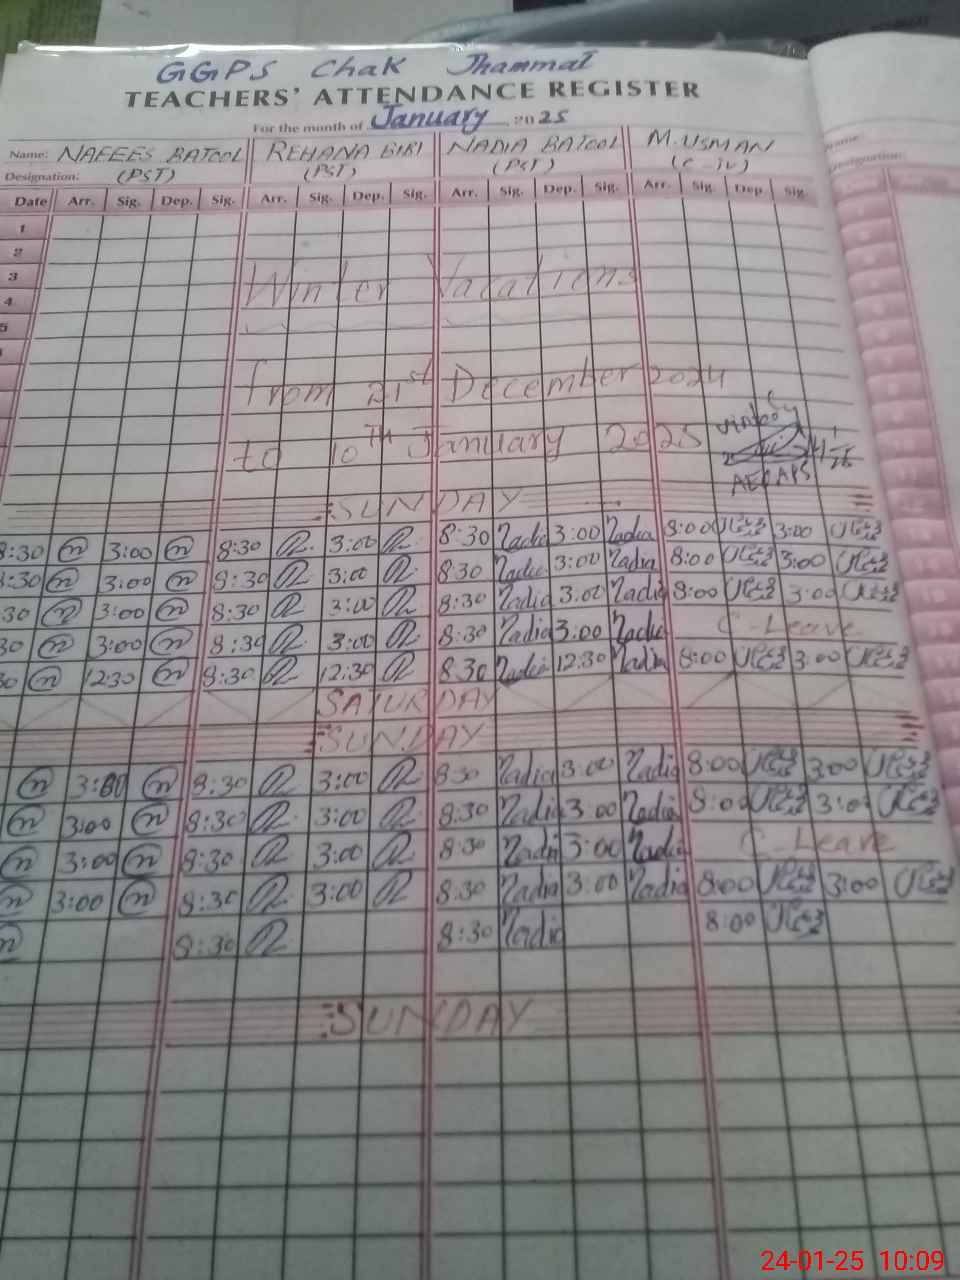 GGPS Chak Jhammat
TEACHERS' ATTENDANCE REGISTER
For the month of January 2025
Name: NAFEES BATOOL REHANA BIBI NADIA BATOOL M. USMAN
Designation: (PST) (PST) (PST) (C-iv)
Date Arr. Sig. Dep. Sig. Arr. Sig. Dep. Sig. Arr. Sig. Dep. Sig. Arr. Sig. Dep. Sig.
1
2
3
Winter Vacations
4
5
from 21st December 2024
to 10TH January 2025
AEO
SUNDAY
8:30 n 3:00 n 8:30 3:00 8:30 Nadia 3:00 Nadia 8:00 3:00
8:30 n 3:00 n 8:30 3:00 8:30 Nadia 3:00 Nadia 8:00 3:00
:30 n 3:00 n 8:30 3:00 8:30 Nadia 3:00 Nadia 8:00 3:00
30 n 3:00 n 8:30 3:00 8:30 Nadia 3:00 Nadia C-Leave
30 n 12:30 n 8:30 12:30 8:30 Nadia 12:30 Nadia 8:00 3:00
SATURDAY
SUNDAY
n 3:00 n 8:30 3:00 8:30 Nadia 3:00 Nadia 8:00 3:00
n 3:00 n 8:30 3:00 8:30 Nadia 3:00 Nadia 8:00 3:00
n 3:00 n 8:30 3:00 8:30 Nadia 3:00 Nadia C-Leave
n 3:00 n 8:30 3:00 8:30 Nadia 3:00 Nadia 8:00 3:00
n 8:30 8:30 Nadia 8:00
SUNDAY
24-01-25 10:09